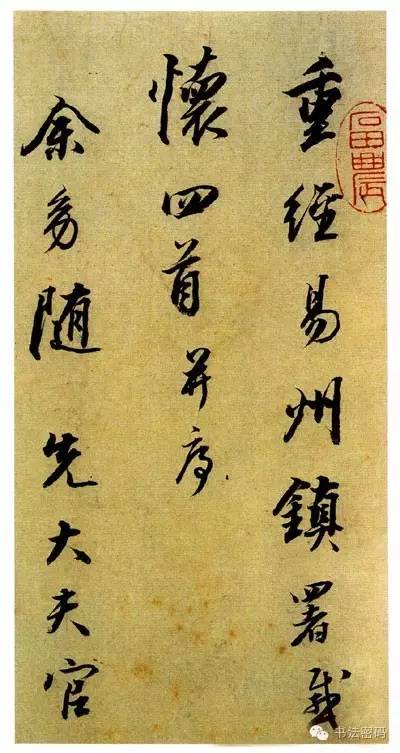 重經易州鎮署感
懷四首并序
余幼随先大夫官
书法密码